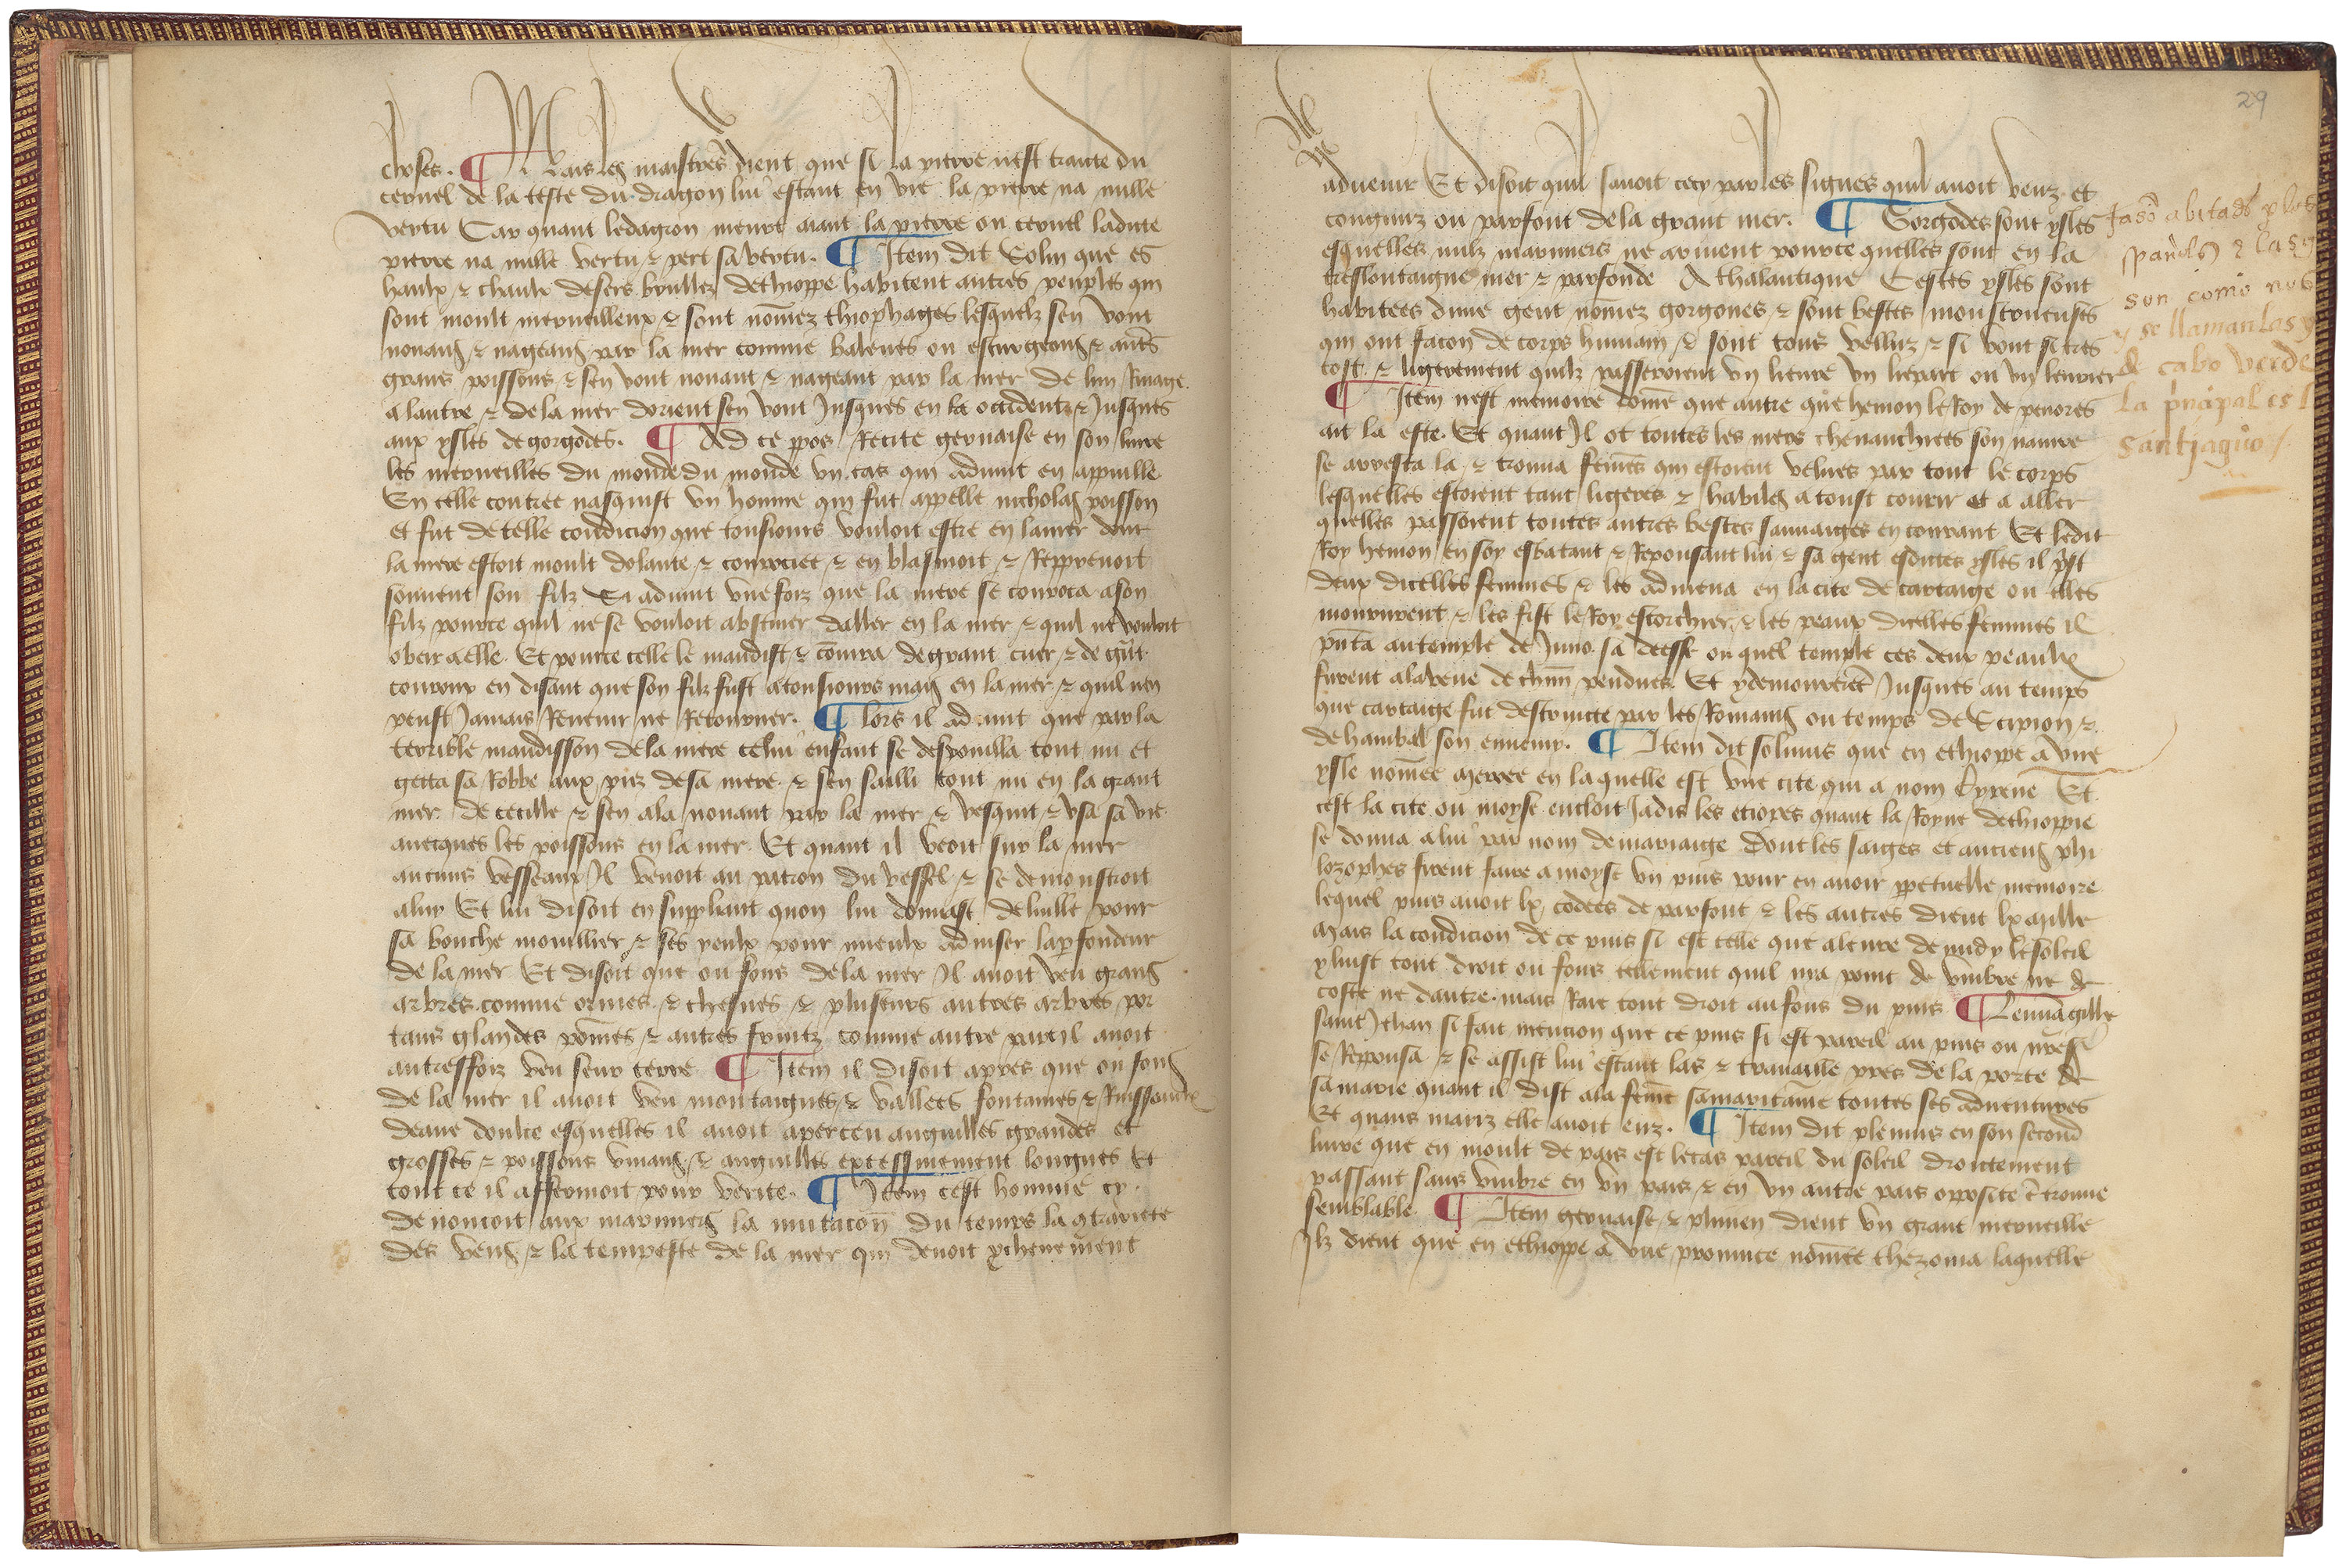 choses. ¶ Mais les maistres dient que si la pierre nest traitte du
cervel de la teste du dragon lui estant en vie la pierre na nulle
vertu Car quant ledagron meurt aiant la pierre ou cervel ladite
pierre na nulle vertu & pert sa vertu. ¶ Item dit Solin que es
haulx & chaulx desers brullez dethioppe habitent autres peuples qui
sont moult merveilleux & sont nom̄ez thiophages lesquelz sen vont
nouans & nageans par la mer comme balenes ou esturgeons & aut̄s
grans poissons & sen vont nouant & nageant par la mer de lun Rivage
a lautre & de la mer dorient sen vont Jusques en la occident & Jusques
aux ysles de gorgodes. ¶ Ad ce ppos Recite gervaise en son livre
les merveilles du monde du monde un cas qui advint en appuille
En celle contree nasquist un homme qui fut appelle nicholas poisson
et fut de telle condicion que tousiours vouloit estre en la mer dont
la mere estoit moult dolante & courrciee & en blasmoit & Repprenoit
souvent son filz Et advint une foiz que la mere se courroca a son
filz pource quil ne se vouloit abstiner daller en la mer & quil ne vouloit
obeir a elle. Et pource celle le maudist & de grant cuer & de gūt
couroux en disant que son filz fust a tousiours mais en la mer & quil nen
peust Jamais Revenir ne Retourner. ¶ lors il advint que par la
terrible maudisson de la mere celui enfant se despouilla tout nu et
getta sa Robbe aux piez de sa mere & sen sailli tout nu en la grant
mer de cecille & sen ala nouant par la mer & vesquit & usa sa vie
avecques les poissons en la mer. Et quant il veoit sur la mer
aucuns vesseaux Il venoit au patron du vessel & se demonstroit
a luy Et lui disoit en suppliant quon lui donnast de luille pour
sa bouche mouillier & ses yeulx pour mieulx adviser la pfondeur
de la mer Et disoit que ou fons de la mer Il avoit veu grans
arbres comme ormes & chesnes & plusieurs autres arbres por
tans glandes pom̄es & autres fruitz comme autre part il avoit
autresfoiz veu seur terre ¶ Item il disoit apres que ou fons
de la mer il avoit veu montaignes & vallees fontaines & Ruisseaulx
deaue doulce esquelles il avoit aperceu anguilles grandes et
grosses & poissons vivans & anguilles excessivement longues Et
tout ce il affermoit pour verite. ¶ Item cest homme cy
denoncoit aux mariniers la mutacon̄ du temps la qtrariete
des vens & la tempeste de la mer qui devoit
29
advenir Et disoit quil savoit cecy par les signes quil avoit veuz et
congnuz ou parfont de la grant mer. ¶ Gorgodes sont ysles
esquelles nulz mariniers ne arrivent pource quelles sont en la
treslontaigne mer & parfonde Athalantique Cestes ysles sont
habitees dune gent nom̄ez gorgones & sont bestes monstrueuses
qui ont facon de corps humain & sont tous velluz & si vont si tres
tost & ligerement quilz passeroient un lievre un liepart ou un levrier
¶ Item nest memoire dom̄e que autre que hemon le Roy de penores
ait la este. Et quant Il ot toutes les mers chevauchees son navire
se arresta la & trouva fem̄es qui estoient velues par tout le corps
lesquelles estoient tant ligeres & habiles a toust courir et a aller
quelles passoient toutes autres bestes sauvaiges en courant Et ledit
Roy hemon en soy esbatant & Reposant lui & sa gent esdites ysles il pst
deux dicelles femmes & les admena en la cite de cartaige ou elles
moururent & les fist le Roy escorchier & les peaux dicelles femmes il
pn̄ta au temple de Juno sa deesse ou quel temple ces deux peaulx
furent a lavenue de chm̄ pendues. Et y demourerēt Jusques au temps
que cartaige fut destruicte par les Romains ou temps de Scipion &
de hanibal son ennemy. ¶ Item dit solinus que en ethioppe a une
ysle nom̄ee merree en laquelle est une cite qui a nom Cyrene Et
cest la cite ou moyse encloit Jadis les etiopes quant la Royne dethioppie
se donna a lui par nom de mariaige Dont les saiges et anciens phi
lozophes firent faire a moyse un puis pour en avoir ppetuelle memoire
lequel puis avoit lx codees de parfont & les autres dient lx mille
Mais la condicion de ce puis si est telle que aleure de midy le soleil
y luist tout droit ou fons tellement quil nya point de umbre ne de
coste ne dautre. mais Raie tout droit au fons du puis. ¶ Leuuāgille
saint Jehan si fait mencion que ce puis si est pareil au puis ou nr̄e s̄
se Reposa & se assist lui estant las & travaille pres de la porte de
samarie quant il dist a la fem̄e samaritaine toutes ses adventures
Et quans mariz elle avoit euz. ¶ Item dit plenius en son second
livre que en moult de pais est le cas pareil du soleil droictement
passant sans umbre en un pais & en un autre pais opposite ē trouve
semblable. ¶ Item gervaise & plinien dient un grant merveille
Ilz dient que en ethioppe a une province nom̄ee thezonia laquelle
Jasō abitads
spañls & las
son como nos
y se llaman las y
de cabo verde
la prīcipal es l
santiaguo/.